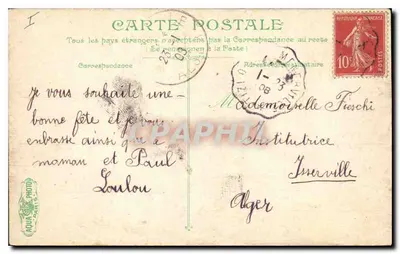 I
CARTE POSTALE
Tous les pays étrangers n'acceptent pas la Correspondance au recto
Se renseigner à la Poste
Correspondance
Je vous souhaite une
bonne fête et je vous
embrasse ainsi que
maman et Paul
Loulou
Mademoiselle Fieschi
Institutrice
Isserville
Alger
10c
POSTES
AQUA PHOTO
PARIS
CPAPHIL